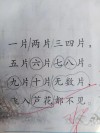 一片两片三四片,
五片六片七八片。
九片十片无数片,
飞入芦花都不见。